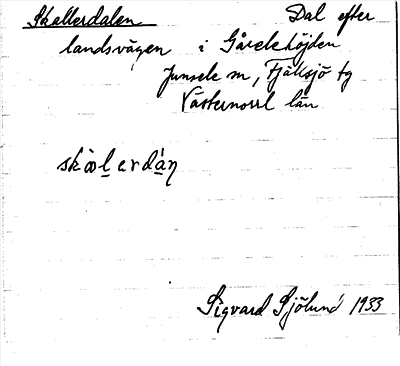 Skallerdalen Dal efter
landsvägen i Gårelehöjden
Junsele sn, Fjällsjö tg
Västernorrl län
Sigvard Sjölund 1933